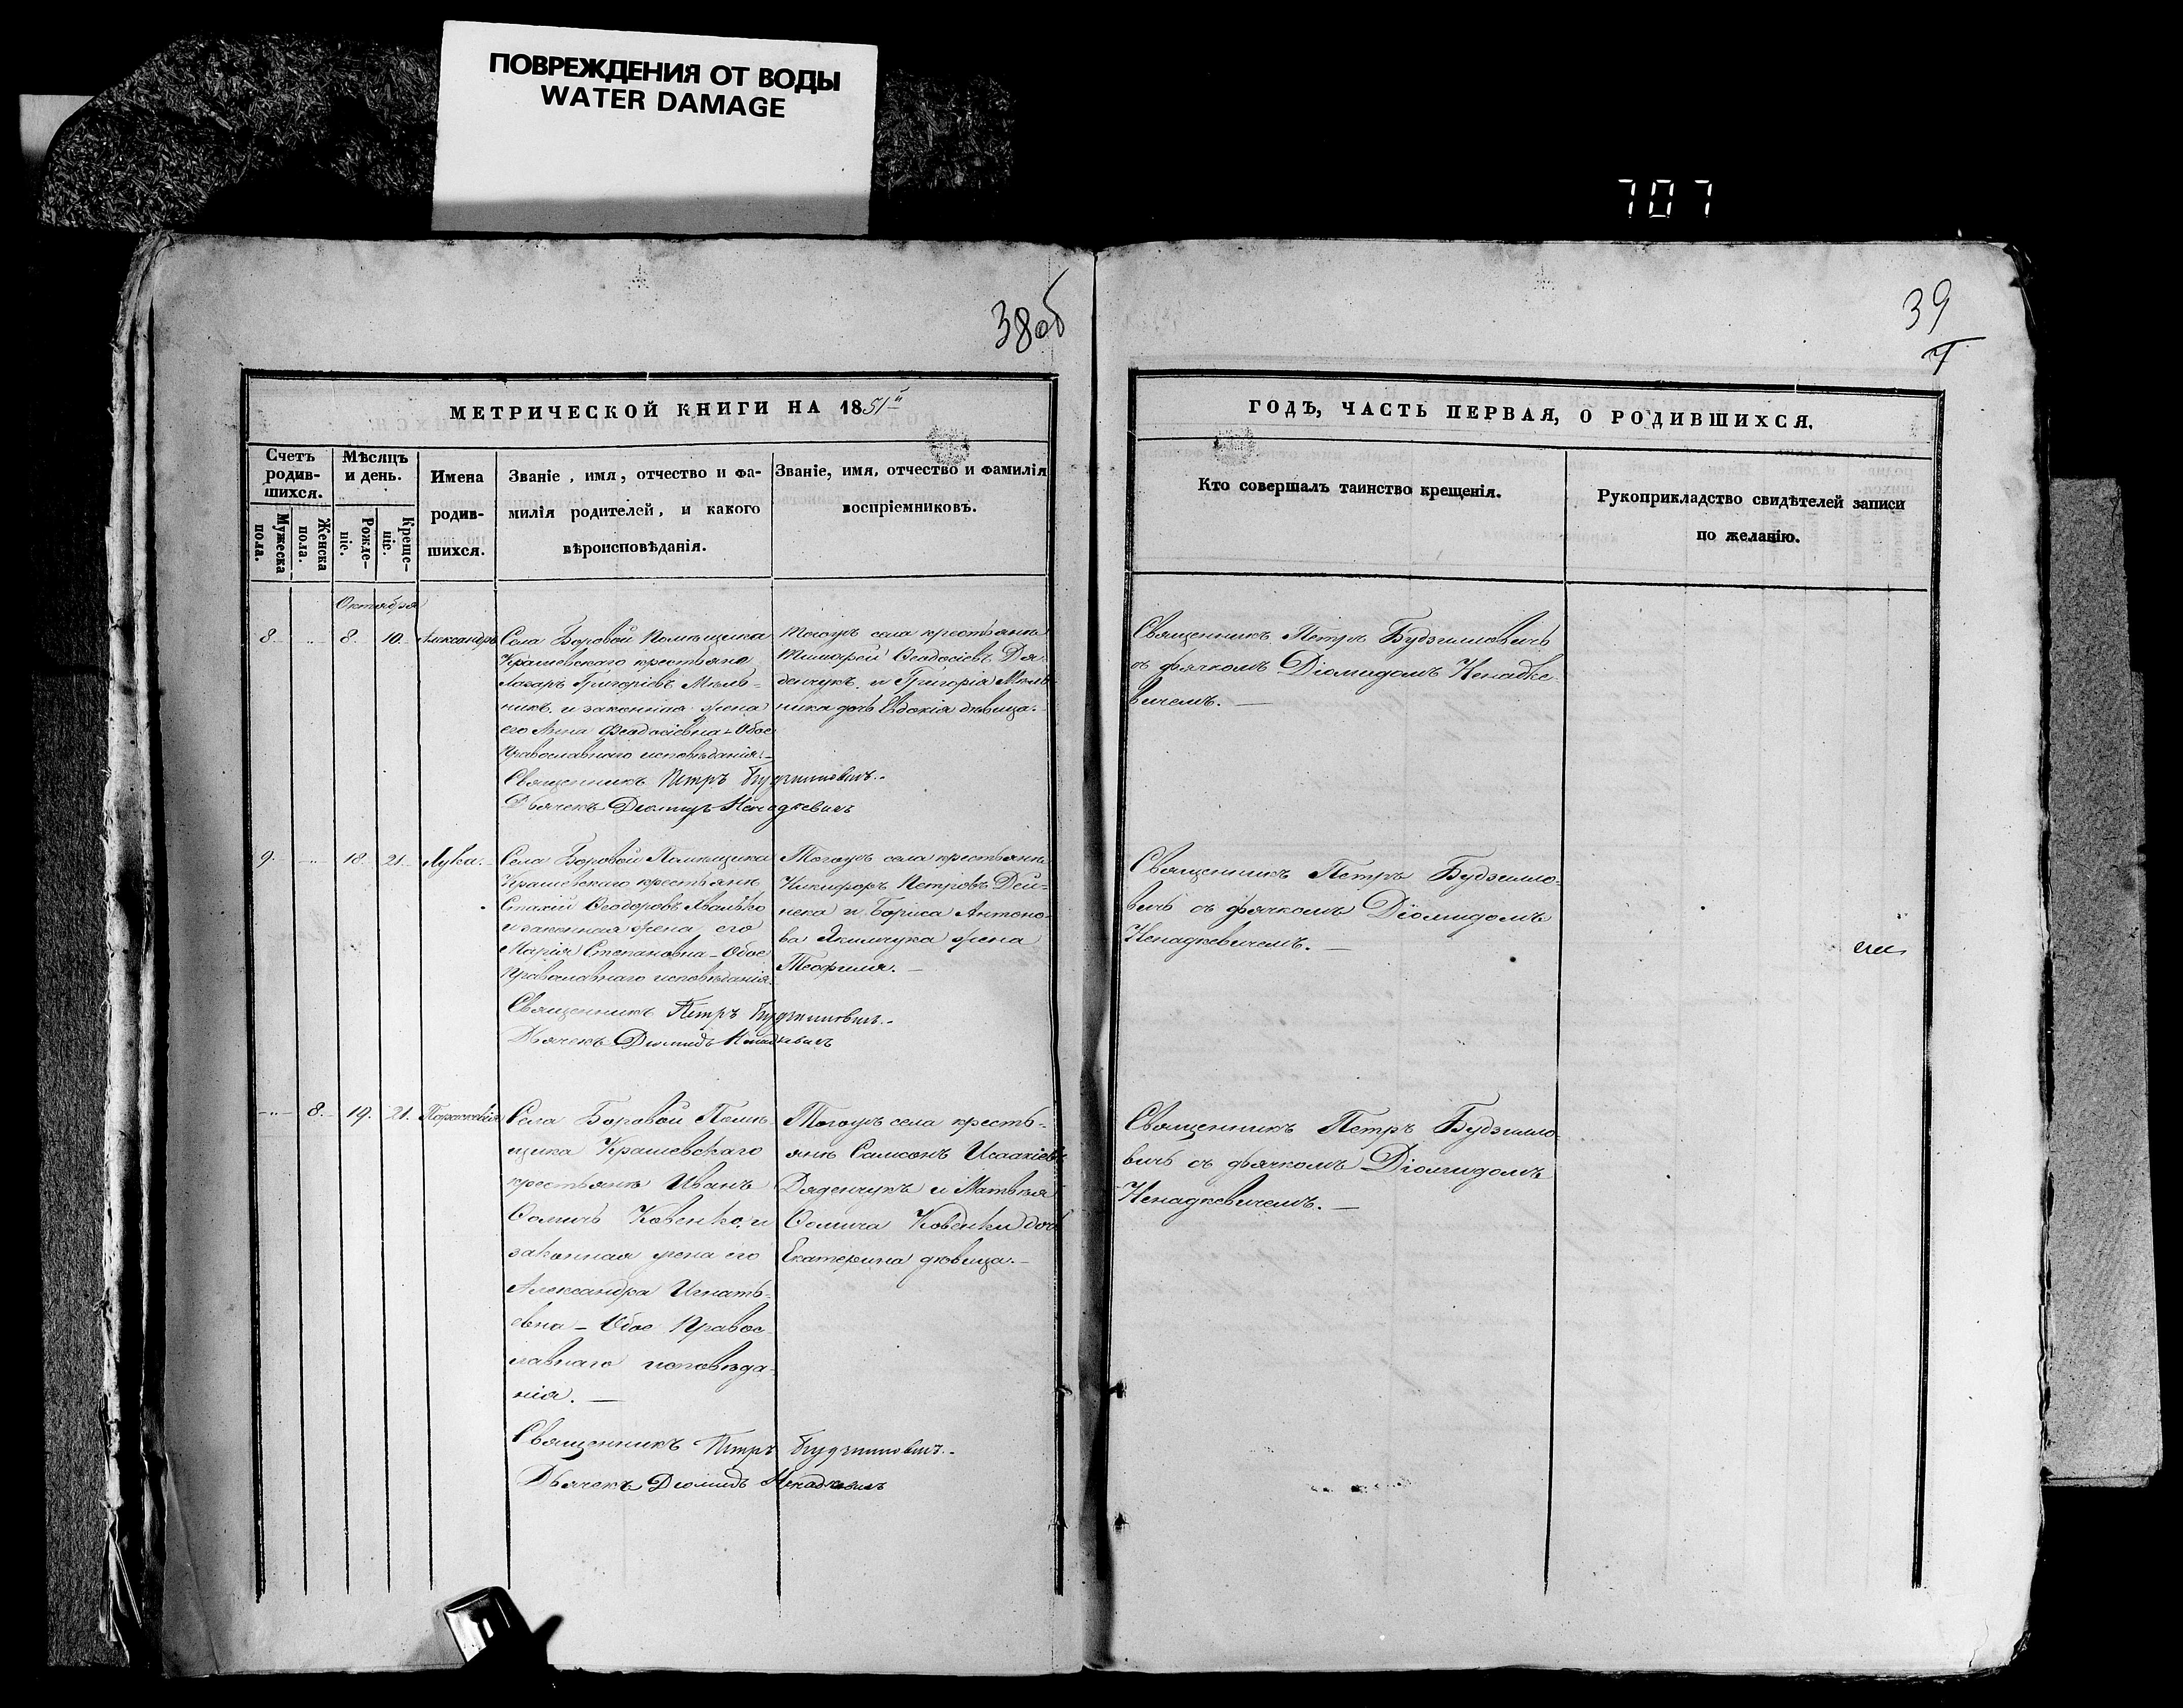 ПОВРЕЖДЕНИЯ ОТ ВОДЫ
WATER DAMAGE
707
38об
39
МЕТРИЧЕСКОЙ КНИГИ НА 1851й
Счетъ родив-шихся.
Мужеска пола.
Женска пола.
Мѣсяцъ и день.
Рожде-ніе.
Креще-ніе.
Имена родив-шихся.
Званіе, имя, отчество и фа-
милія родителей, и какого
вѣроисповѣданія.
Званіе, имя, отчество и фамилія
воспріемниковъ.
Октября
8. 8. 10. Александръ
Села Боровой Помѣщика
Крашевскаго крестьянинъ
Лазарь Григоріевъ Мель-
никъ и законная жена
его Анна Феодосіевна Обое
Православнаго исповѣданія.
Священникъ Петръ Будзиловичъ.
Дьячекъ Діомидъ Ненадкевичъ
Тогожъ села крестьянинъ
Ѳеодосіевъ Дя-
денчукъ и Григорія Мель-
ника дочь Евдокія дѣвица.
9. 18. 21. Лука.
Села Боровой Помѣщика
Крашевскаго крестьянинъ
Ѳеодоровъ
и законная жена его
Марія Степановна - Обое
Православнаго исповѣданія.
Священникъ Петръ Будзиловичъ.
Дьячекъ Діомидъ Ненадкевичъ
Тогожъ села крестьянинъ
Никифоръ Петровъ Дей-
нека и Бориса Антоно-
ва Якимчука жена
Теофилія.
8. 19. 21. Параскевія
Села Боровой Помѣ-
щика Крашевскаго
крестьянинъ Иванъ
Ѳомичъ Ковенко и
законная жена его
Александра Игнать-
евна - Обое Правос-
лавнаго исповѣда-
нія.
Священникъ Петръ Будзиловичъ.
Дьячекъ Діомидъ Ненадкевичъ
Тогожъ села кресть-
янинъ Самсонъ Исаакіевъ
Дяденчукъ и Матвѣя
Ѳомича Ковенки дочь
Екатерина дѣвица.
ГОДЪ, ЧАСТЬ ПЕРВАЯ, О РОДИВШИХСЯ.
Кто совершалъ таинство крещенія.
Рукоприкладство свидѣтелей записи
по желанію.
Священникъ Петръ Будзиловичъ
съ дьячкомъ Діомидомъ Ненадке-
вичемъ.
Священникъ Петръ Будзило-
вичъ съ дьячкомъ Діомидомъ
Ненадкевичемъ.
Священникъ Петръ Будзило-
вичъ съ дьячкомъ Діомидомъ
Ненадкевичемъ.